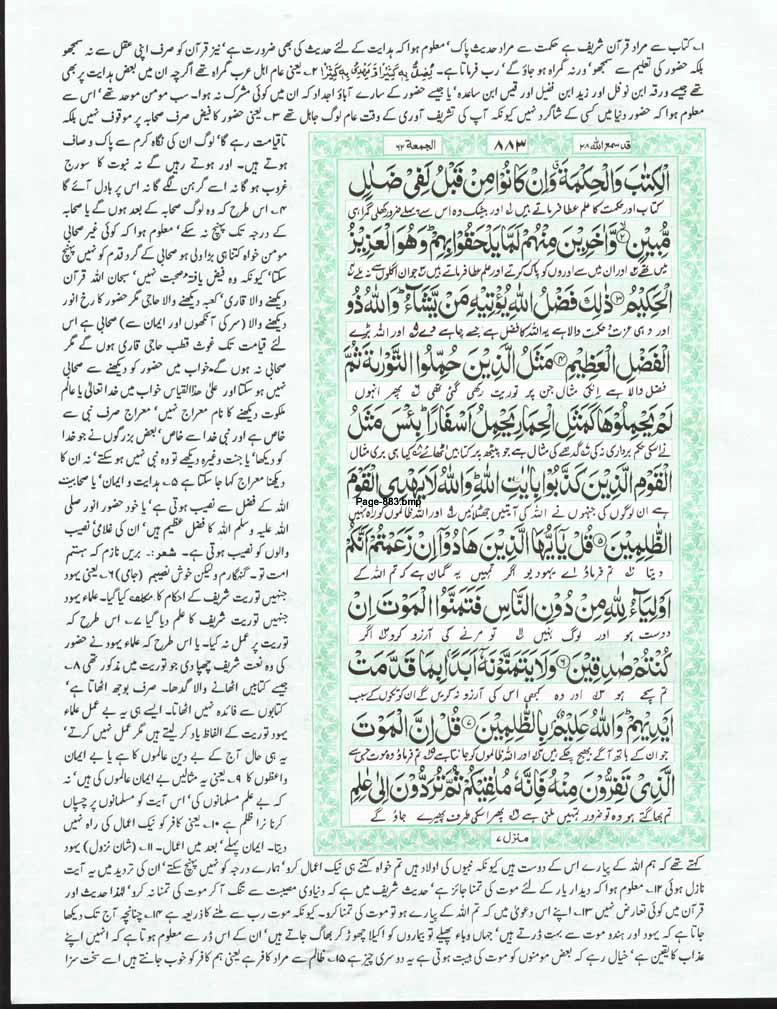 ۱۔ کتاب سے مراد قرآن شریف ہے حکمت سے مراد حدیث پاک' معلوم ہوا کہ ہدایت کے لئے حدیث کی بھی ضرورت ہے' نیز قرآن کو صرف اپنی عقل سے نہ سمجھو
بلکہ حضور کی تعلیم سے سمجھو' ورنہ گمراہ ہو جاؤ گے' رب فرماتا ہے۔ یُضِلُّ بِهٖ كَثِیْرًا وَّ یَهْدِیْ بِهٖ كَثِیْرًا ۲۔ یعنی عام اہل عرب گمراہ تھے اگرچہ ان میں بعض ہدایت پر بھی
تھے جیسے ورقہ ابن نوفل اور زید ابن نفیل اور قیس ابن ساعدہ' یا جیسے حضور کے سارے آباؤ اجداد کہ ان میں کوئی مشرک نہ ہوا۔ سب مومن موحد تھے' اس سے
معلوم ہوا کہ حضور دنیا میں کسی کے شاگرد نہیں کیونکہ آپ کی تشریف آوری کے وقت عام لوگ جاہل تھے ۳۔ یعنی حضور کا فیض صرف صحابہ پر موقوف نہیں بلکہ
قد سمع اللہ ۲۸
۸۸۳
الجمعة ۶۲
الْكِتٰبَ وَالْحِكْمَةَ وَاِنْ كَانُوْا مِنْ قَبْلُ لَفِیْ ضَلٰلٍ
کتاب اور حکمت کا علم عطا فرماتے ہیں اور بیشک وہ اس سے پہلے ضرور کھلی گمراہی
مُّبِیْنٍ ۲ وَّاٰخَرِیْنَ مِنْهُمْ لَمَّا یَلْحَقُوْا بِهِمْ وَهُوَ الْعَزِیْزُ
میں تھے اور ان میں سے اوروں کو پاک کرتے اور علم عطا فرماتے ہیں جو ان اگلوں سے نہ ملے
الْحَكِیْمُ ۳ ذٰلِكَ فَضْلُ اللّٰهِ یُؤْتِیْهِ مَنْ یَّشَآءُ وَاللّٰهُ ذُو
اور وہی عزت و حکمت والا ہے یہ اللہ کا فضل ہے جسے چاہے دے اور اللہ بڑے
الْفَضْلِ الْعَظِیْمِ ۴ مَثَلُ الَّذِیْنَ حُمِّلُوا التَّوْرٰىةَ ثُمَّ
فضل والا ہے انکی مثال جن پر توریت رکھی گئی تھی پھر انہوں
لَمْ یَحْمِلُوْهَا كَمَثَلِ الْحِمَارِ یَحْمِلُ اَسْفَارًا بِئْسَ مَثَلُ
نے اسکی حکم برداری نہ کی گدھے کی مثال ہے جو پیٹھ پر کتابیں اٹھائے کیا ہی بری مثال
الْقَوْمِ الَّذِیْنَ كَذَّبُوْا بِاٰیٰتِ اللّٰهِ وَاللّٰهُ لَا یَهْدِی الْقَوْمَ
Page-883.bmp
ہے ان لوگوں کی جنہوں نے اللہ کی آیتیں جھٹلائیں اور اللہ ظالموں کو راہ نہیں
الظّٰلِمِیْنَ ۵ قُلْ یٰۤاَیُّهَا الَّذِیْنَ هَادُوْۤا اِنْ زَعَمْتُمْ اَنَّكُمْ
دیتا تم فرماؤ اے یہودیو اگر تمہیں یہ گمان ہے کہ تم اللہ کے
اَوْلِیَآءُ لِلّٰهِ مِنْ دُوْنِ النَّاسِ فَتَمَنَّوُا الْمَوْتَ اِنْ
دوست ہو اور لوگ نہیں تو مرنے کی آرزو کرو اگر
كُنْتُمْ صٰدِقِیْنَ ۶ وَلَا یَتَمَنَّوْنَهٗۤ اَبَدًۢا بِمَا قَدَّمَتْ
تم سچے ہو اور وہ کبھی اس کی آرزو نہ کریں گے ان کوتکوں کے سبب
اَیْدِیْهِمْ وَاللّٰهُ عَلِیْمٌۢ بِالظّٰلِمِیْنَ ۷ قُلْ اِنَّ الْمَوْتَ
جو ان کے ہاتھ آگے بھیج چکے ہیں اور اللہ ظالموں کو جانتا ہے تم فرماؤ وہ موت جس سے
الَّذِیْ تَفِرُّوْنَ مِنْهُ فَاِنَّهٗ مُلٰقِیْكُمْ ثُمَّ تُرَدُّوْنَ اِلٰى عٰلِمِ
تم بھاگتے ہو وہ تو ضرور تمہیں ملنی ہے پھر اسکی طرف پھیرے جاؤ گے
منزل ۷
تاقیامت رہے گا' لوگ ان کی نگاہ کرم سے پاک و صاف
ہوتے ہیں۔ اور ہوتے رہیں گے نہ نبوت کا سورج
غروب ہو گا نہ اسے گرہن لگے گا نہ اس پر بادل آئے گا
۴۔ اس طرح کہ وہ لوگ صحابہ کے بعد ہوں گے یا صحابہ
کے درجہ تک پہنچ نہ سکے' معلوم ہوا کہ کوئی غیر صحابی
مومن خواہ کتنا ہی بڑا ولی ہو صحابی کے گرد قدم کو نہیں پہنچ
سکتا' کیونکہ وہ فیض یافتۂ صحبت نہیں' سبحان اللہ قرآن
دیکھنے والا قاری' کعبہ دیکھنے والا حاجی مگر حضور کا رخ انور
دیکھنے والا (سر کی آنکھوں اور ایمان سے) صحابی ہے اس
لئے قیامت تک غوث قطب حاجی قاری ہوں گے مگر
صحابی نہ ہوں گے خواب میں حضور کو دیکھنے سے صحابی
نہیں ہو سکتا اور علیٰ ھذا القیاس خواب میں خدا تعالیٰ یا عالم
ملکوت دیکھنے کا نام معراج نہیں' معراج صرف نبی سے
خاص ہے اور نبی خدا سے خاص' بعض بزرگوں نے جو خدا
کو دیکھا' یا جنت وغیرہ دیکھے تو وہ نبی نہیں ہو سکتے' نہ ان کا
دیکھنا معراج کہا جا سکتا ہے ۵۔ ہدایت و ایمان' یا صحابیت
اللہ کے فضل سے نصیب ہوتی ہے' یا خود حضور انور صلی
اللہ علیہ وسلم اللہ کا فضل عظیم ہیں' ان کی غلامی نصیب
والوں کو نصیب ہوتی ہے۔ شعر:۔ بریں نازم کہ ہستم
امت تو۔ گنہگارم و لیکن خوش نصیبم (جامی) ۶۔ یعنی یہود
جنہیں توریت شریف کے احکام کا مکلف کیا گیا۔ علماء یہود
جنہیں توریت شریف کا علم دیا گیا ۷۔ اس طرح کہ
توریت پر عمل نہ کیا۔ یا اس طرح کہ علماء یہود نے حضور
کی وہ نعت شریف چھپا دی جو توریت میں مذکور تھی ۸۔
جیسے کتابیں اٹھانے والا گدھا۔ صرف بوجھ اٹھاتا ہے'
کتابوں سے فائدہ نہیں اٹھاتا۔ ایسے ہی یہ بے عمل علماء
یہود توریت کے الفاظ یاد کر لیتے ہیں مگر عمل نہیں کرتے'
یہ ہی حال آج کے بے دین عالموں کا ہے یا بے ایمان
واعظوں کا ۹۔ یعنی یہ مثالیں بے ایمان عالموں کی ہیں' نہ
کہ بے علم مسلمانوں کی' اس آیت کو مسلمانوں پر چسپاں
کرنا نرا ظلم ہے ۱۰۔ یعنی کافر کو نیک اعمال کی راہ نہیں
دیتا۔ ایمان پہلے' بعد میں اعمال۔ ۱۱۔ (شان نزول) یہود
کہتے تھے کہ ہم اللہ کے پیارے اس کے دوست ہیں کیونکہ نبیوں کی اولاد ہیں تم خواہ کتنے ہی نیک اعمال کرو' ہمارے درجہ کو نہیں پہنچ سکتے' ان کی تردید میں یہ آیت
نازل ہوئی ۱۲۔ معلوم ہوا کہ دیدار یار کے لئے موت کی تمنا جائز ہے' حدیث شریف میں ہے کہ دنیاوی مصیبت سے تنگ آ کر موت کی تمنا نہ کرو' لہٰذا حدیث اور
قرآن میں کوئی تعارض نہیں ۱۳۔ اپنے اس دعویٰ میں کہ تم اللہ کے پیارے ہو تو موت کی تمنا کرو۔ کیونکہ موت رب سے ملنے کا ذریعہ ہے ۱۴۔ چنانچہ آج تک دیکھا
جاتا ہے کہ یہود اور ہندو موت سے بہت ڈرتے ہیں' جہاں وباء پھیلے تو بیماروں کو اکیلا چھوڑ کر بھاگ جاتے ہیں' ان کے اس ڈر سے معلوم ہوتا ہے کہ انہیں اپنے
عذاب کا یقین ہے' خیال رہے کہ بعض مومنوں کو موت کی ہیبت ہوتی ہے یہ دوسری چیز ہے ۱۵۔ ظالم سے مراد کافر ہے یعنی ہم کافر کو خوب جانتے ہیں اسے سخت سزا